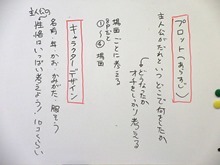 プロット(あらすじ)
主人公がだれといつどこで何をしたのか
どうなったか
オチをしっかり考える
場面ごとに考える
8Pだと
①~④場面
キャラクターデザイン
名前 年 かお かみがた 服そう
主人公の
性格はいっぱい考えよう!10コくらい